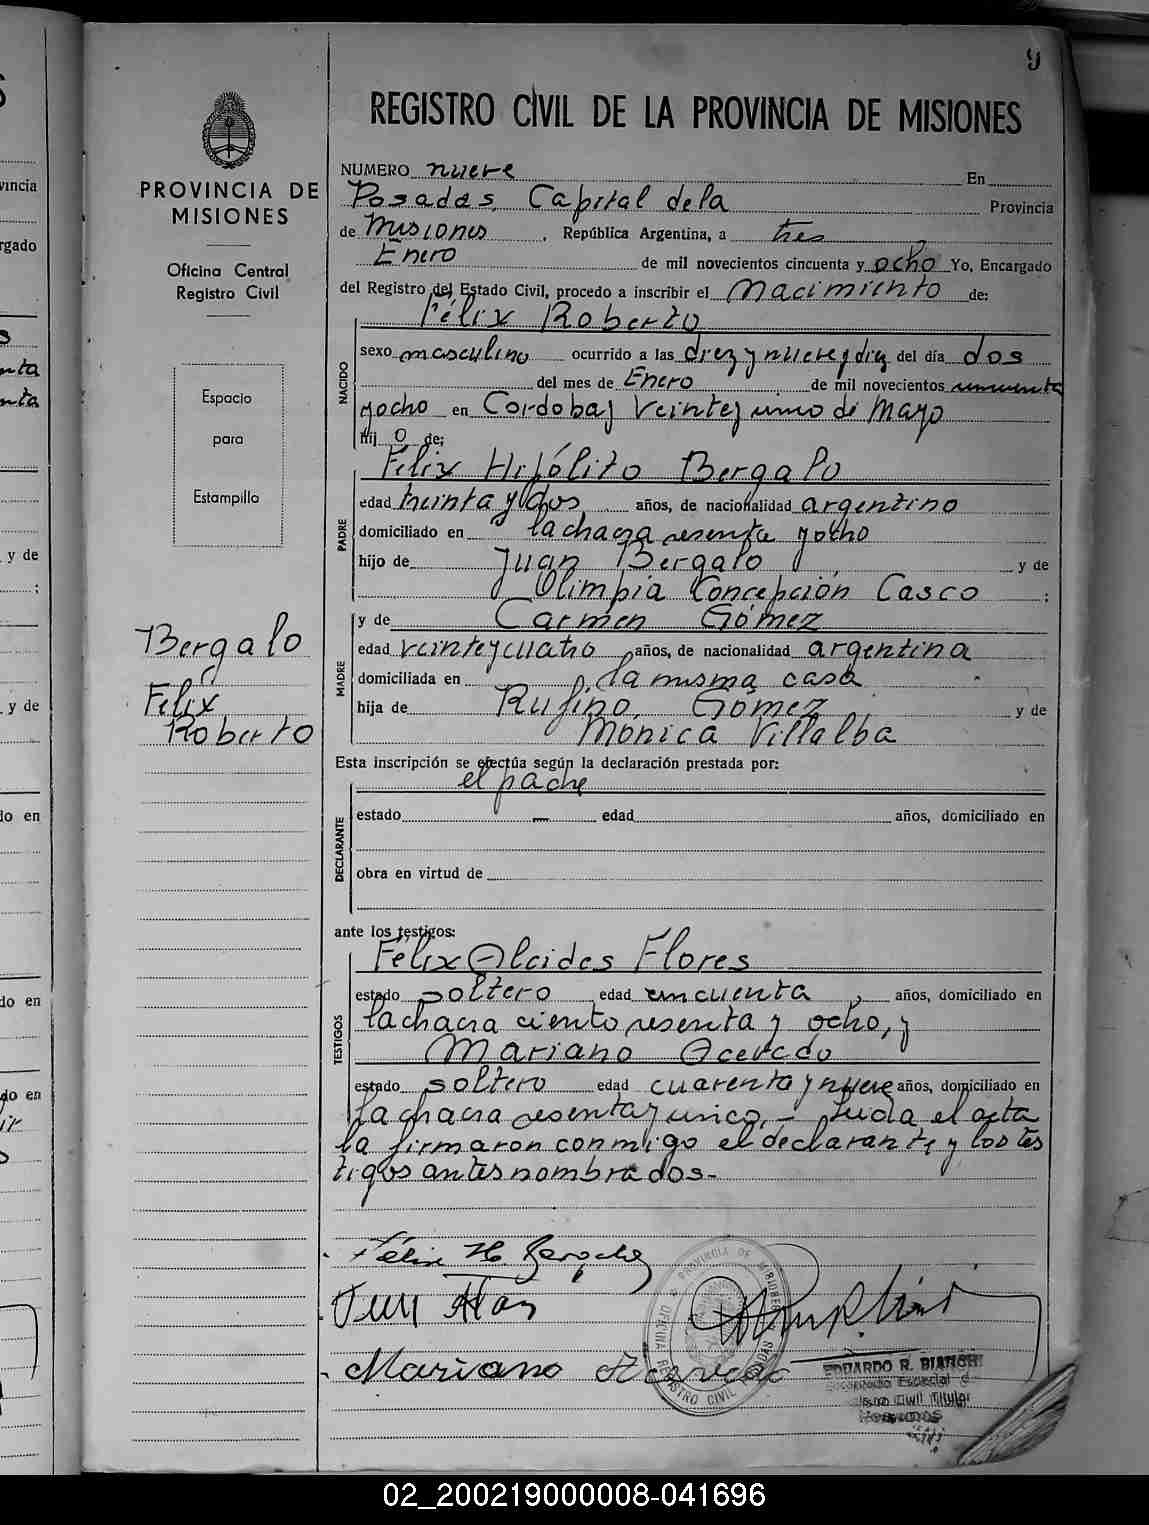 9
REGISTRO CIVIL DE LA PROVINCIA DE MISIONES
PROVINCIA DE
MISIONES
Oficina Central
Registro Civil
Espacio
para
Estampilla
Bergalo
Felix
Roberto
NUMERO nueve En
Posadas, Capital dela Provincia
de Misiones, República Argentina, a tres
Enero de mil novecientos cincuenta y ocho Yo, Encargado
del Registro del Estado Civil, procedo a inscribir el Nacimiento de:
Félix Roberto
NACIDO
sexo masculino ocurrido a las diez y nueve y diez del día dos
del mes de Enero de mil novecientos cincuenta
yocho en Cordoba y Veinte y uno de Mayo
hij o de:
Félix Hipólito Bergalo
PADRE
edad treinta y dos años, de nacionalidad argentino
domiciliado en la chacra sesenta yocho
hijo de Juan Bergalo y de
Olimpia Concepción Casco ;
y de Carmen Gómez
MADRE
edad veinte y cuatro años, de nacionalidad argentina
domiciliada en la misma casa
hija de Rufino Gómez y de
Mónica Villalba
Esta inscripción se efectúa según la declaración prestada por:
el padre
DECLARANTE
estado — edad años, domiciliado en
obra en virtud de
ante los testigos:
Félix Alcides Flores
TESTIGOS
estado soltero edad cincuenta, años, domiciliado en
la chacra ciento sesenta y ocho, y
Mariano Acevedo
estado soltero edad cuarenta y nueve años, domiciliado en
la chacra sesenta y unico.- Leida el acta
la firmaron conmigo el declarante y los tes
tigos antes nombrados.-
Félix H.
Mariano
PROVINCIA DE MISIONES
OFICINA REGISTRO CIVIL POSADAS
EDUARDO R. BIANCHI
Civil Titular
02_200219000008-041696